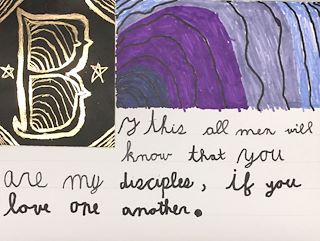 By this all men will
know that you
are my disciples, if you
love one another.